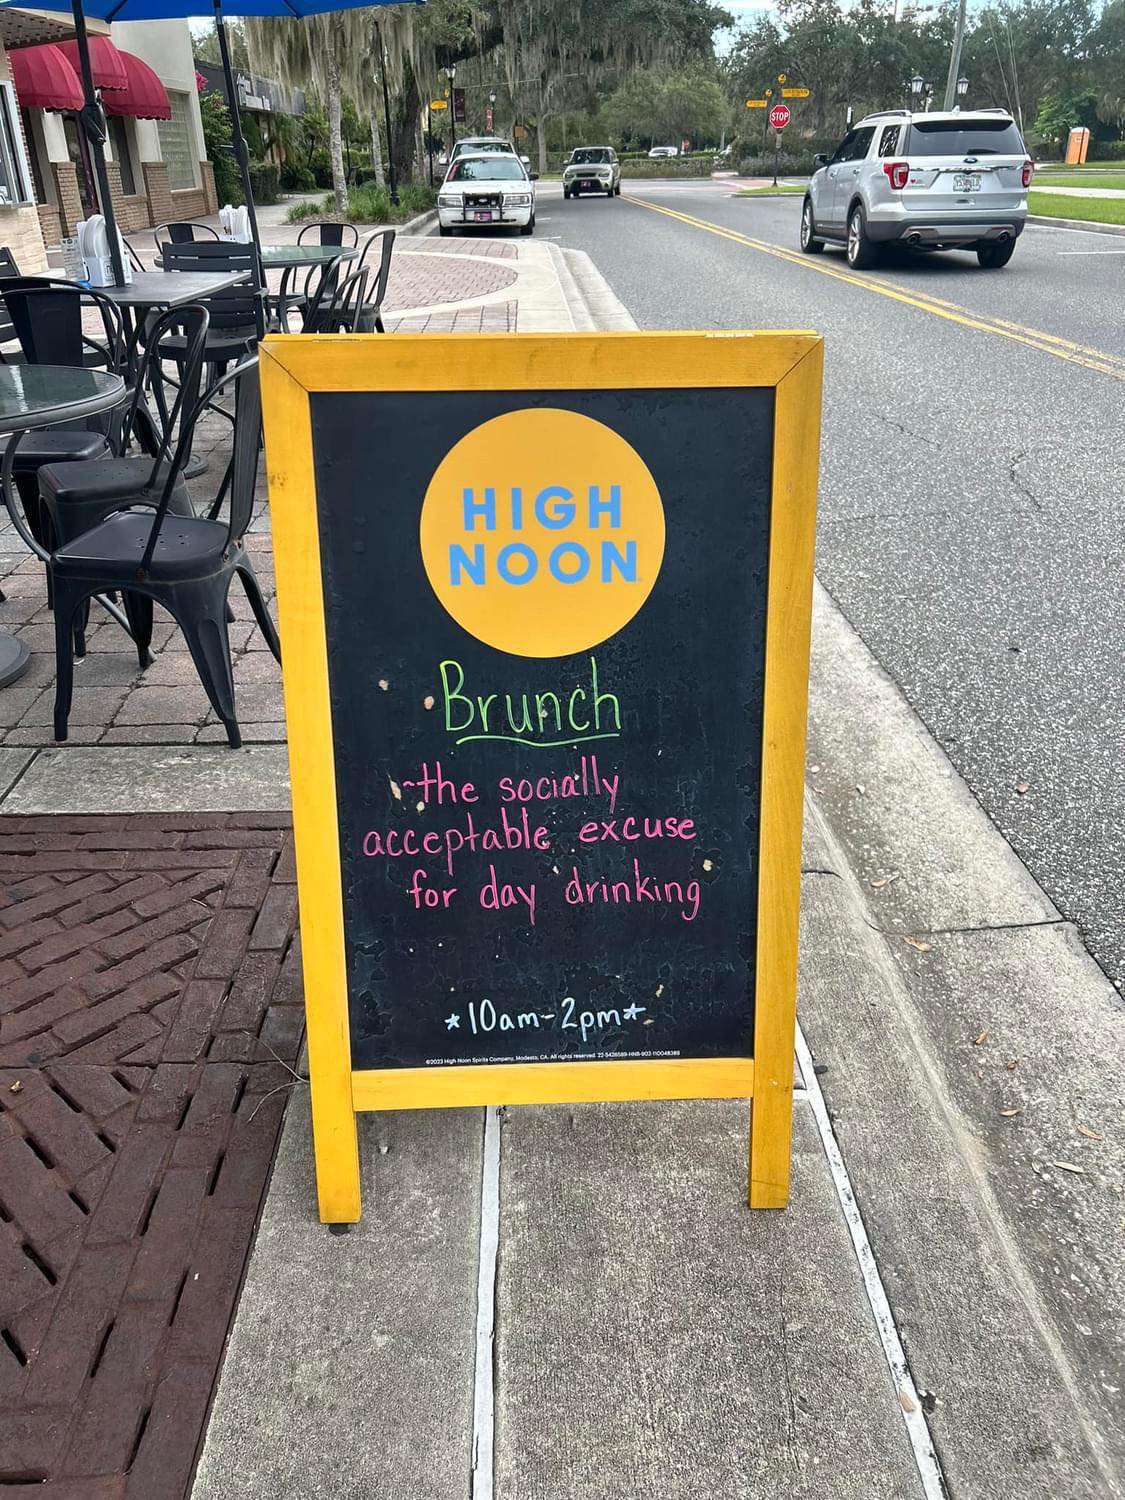 STOP
HIGH
NOON
Brunch
~the socially
acceptable excuse
for day drinking
*10am-2pm*
©2023 High Noon Spirits Company, Modesto, CA. All rights reserved. 22-5426589-HNR-902-110048389